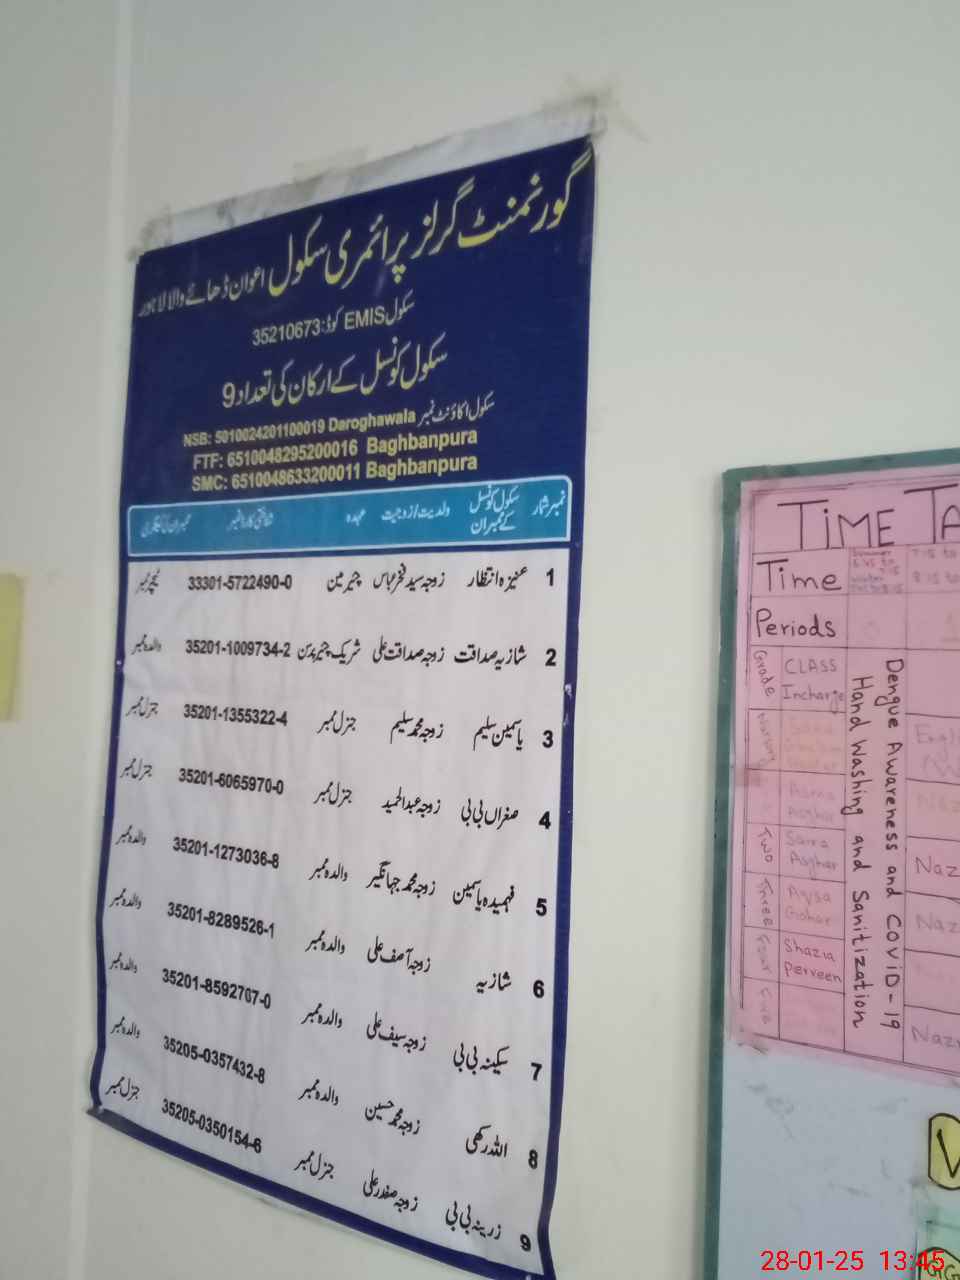 گورنمنٹ گرلز پرائمری سکول اعوان ڈھائے والا لاہور
سکول EMIS کوڈ: 35210673
سکول کونسل کے ارکان کی تعداد 9
سکول اکاؤنٹ نمبر
NSB: 5010024201100019 Daroghawala
FTF: 6510048295200016 Baghbanpura
SMC: 6510048633200011 Baghbanpura
نمبر شمار سکول کونسل کے ممبران ولدیت/زوجیت عہدہ شناختی کارڈ نمبر
1 عنیزہ انتظار زوجہ سید فخر عباس چئیرمین 33301-5722490-0 ٹیچر ممبر
2 شازیہ صداقت زوجہ صداقت علی شریک چئیرپرسن 35201-1009734-2 والدہ ممبر
3 یاسمین سلیم زوجہ محمد سلیم جنرل ممبر 35201-1355322-4 جنرل ممبر
4 صغراں بی بی زوجہ عبدالحمید جنرل ممبر 35201-6065970-0 جنرل ممبر
5 فہمیدہ یاسمین زوجہ محمد جہانگیر والدہ ممبر 35201-1273036-8 والدہ ممبر
6 شازیہ زوجہ آصف علی والدہ ممبر 35201-8289526-1 والدہ ممبر
7 سکینہ بی بی زوجہ سیف علی والدہ ممبر 35201-8592707-0 والدہ ممبر
8 اللہ رکھی زوجہ محمد حسین والدہ ممبر 35205-0357432-8 والدہ ممبر
9 زرینہ بی بی زوجہ صفدر علی جنرل ممبر 35205-0350154-6 جنرل ممبر
TIME TA
Time
Periods
Grade CLASS Incharge
Nursery
Asma Asghar
Two Saira Asghar
Three Aysa Gohar
Four Shazia Perveen
Five
Hand Washing and Sanitization
Dengue Awareness and COVID-19
Engl
Naz
Naz
Naz
V
28-01-25 13:45